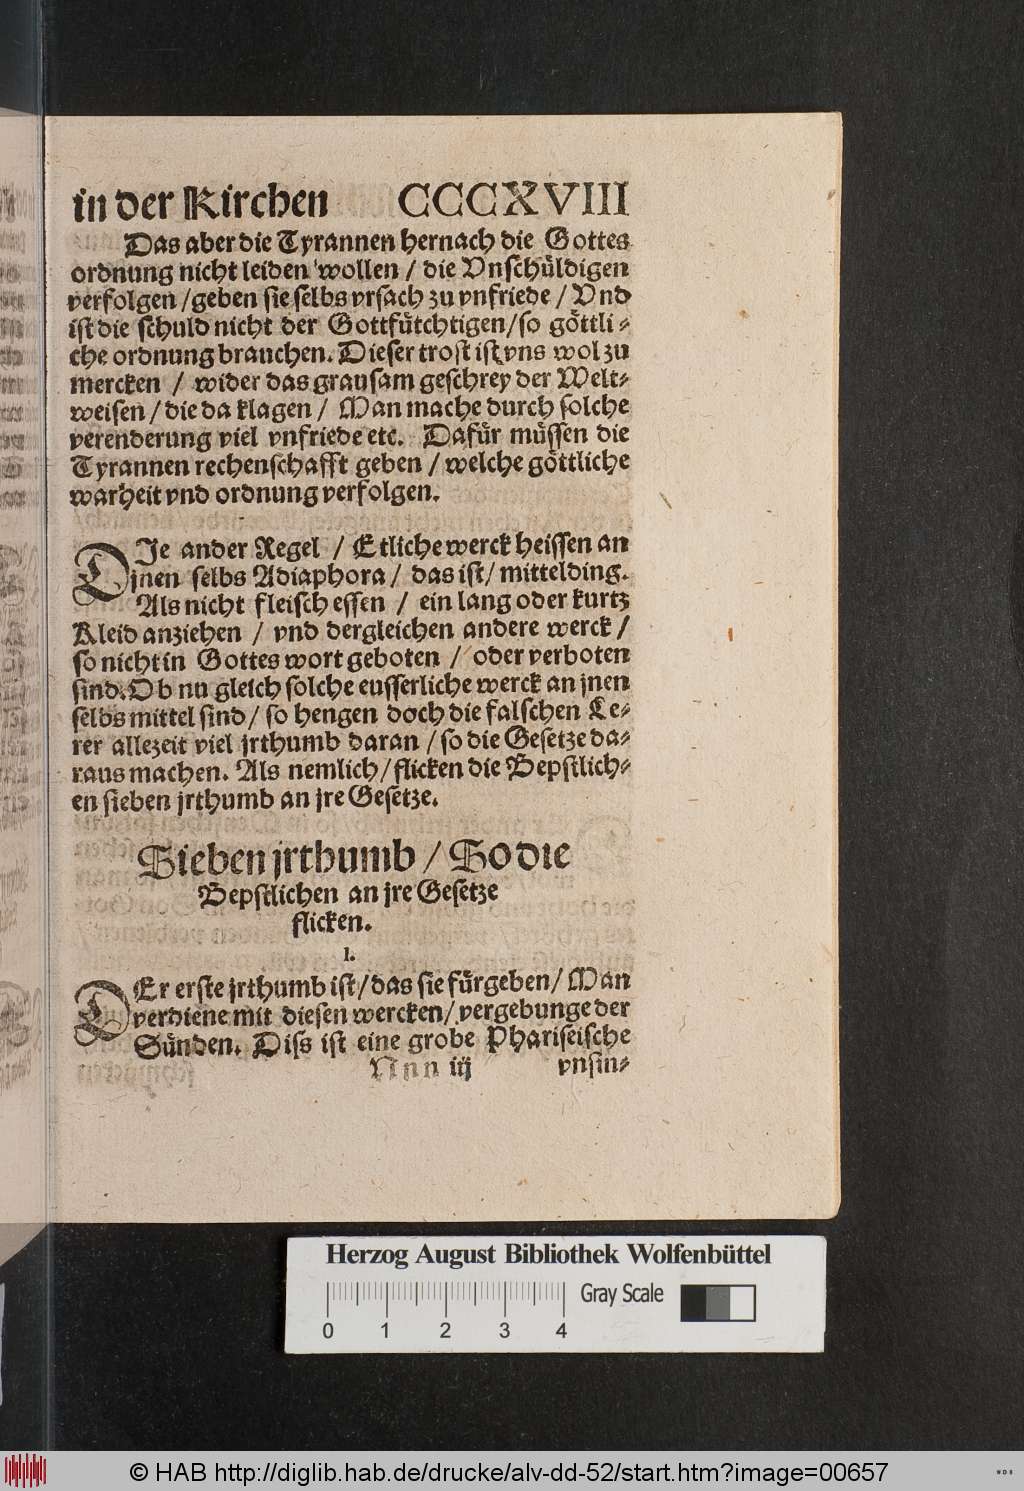 in der Kirchen CCCXVIII
Das aber die Tyrannen hernach die Gottes
ordnung nicht leiden wollen / die Vnschüldigen
verfolgen / geben sie selbs vrsach zu vnfriede / Vnd
ist die schuld nicht der Gottfütchtigen / so göttli-
che ordnung brauchen. Dieser trost ist vns wol zu
mercken / wider das grausam geschrey der Welt-
weisen / die da klagen / Man mache durch solche
verenderung viel vnfriede etc. Dafür müssen die
Tyrannen rechenschafft geben / welche göttliche
warheit vnd ordnung verfolgen.
DIe ander Regel / Etliche werck heissen an
jnen selbs Adiaphora / das ist / mittelding.
Als nicht fleisch essen / ein lang oder kurtz
Kleid anziehen / vnd dergleichen andere werck /
so nicht in Gottes wort geboten / oder verboten
sind. Ob nu gleich solche eusserliche werck an jnen
selbs mittel sind / so hengen doch die falschen Le-
rer allezeit viel jrthumb daran / so die Gesetze da-
raus machen. Als nemlich / flicken die Bepstlich-
en sieben jrthumb an jre Gesetze.
Sieben jrthumb / So die
Bepstlichen an jre Gesetze
flicken.
I.
DEr erste jrthumb ist / das sie fürgeben / Man
verdiene mit diesen wercken / vergebunge der
Sünden. Diss ist eine grobe Phariseische
Nnn iij vnsin-
Herzog August Bibliothek Wolfenbüttel
Gray Scale
0 1 2 3 4
© HAB http://diglib.hab.de/drucke/alv-dd-52/start.htm?image=00657